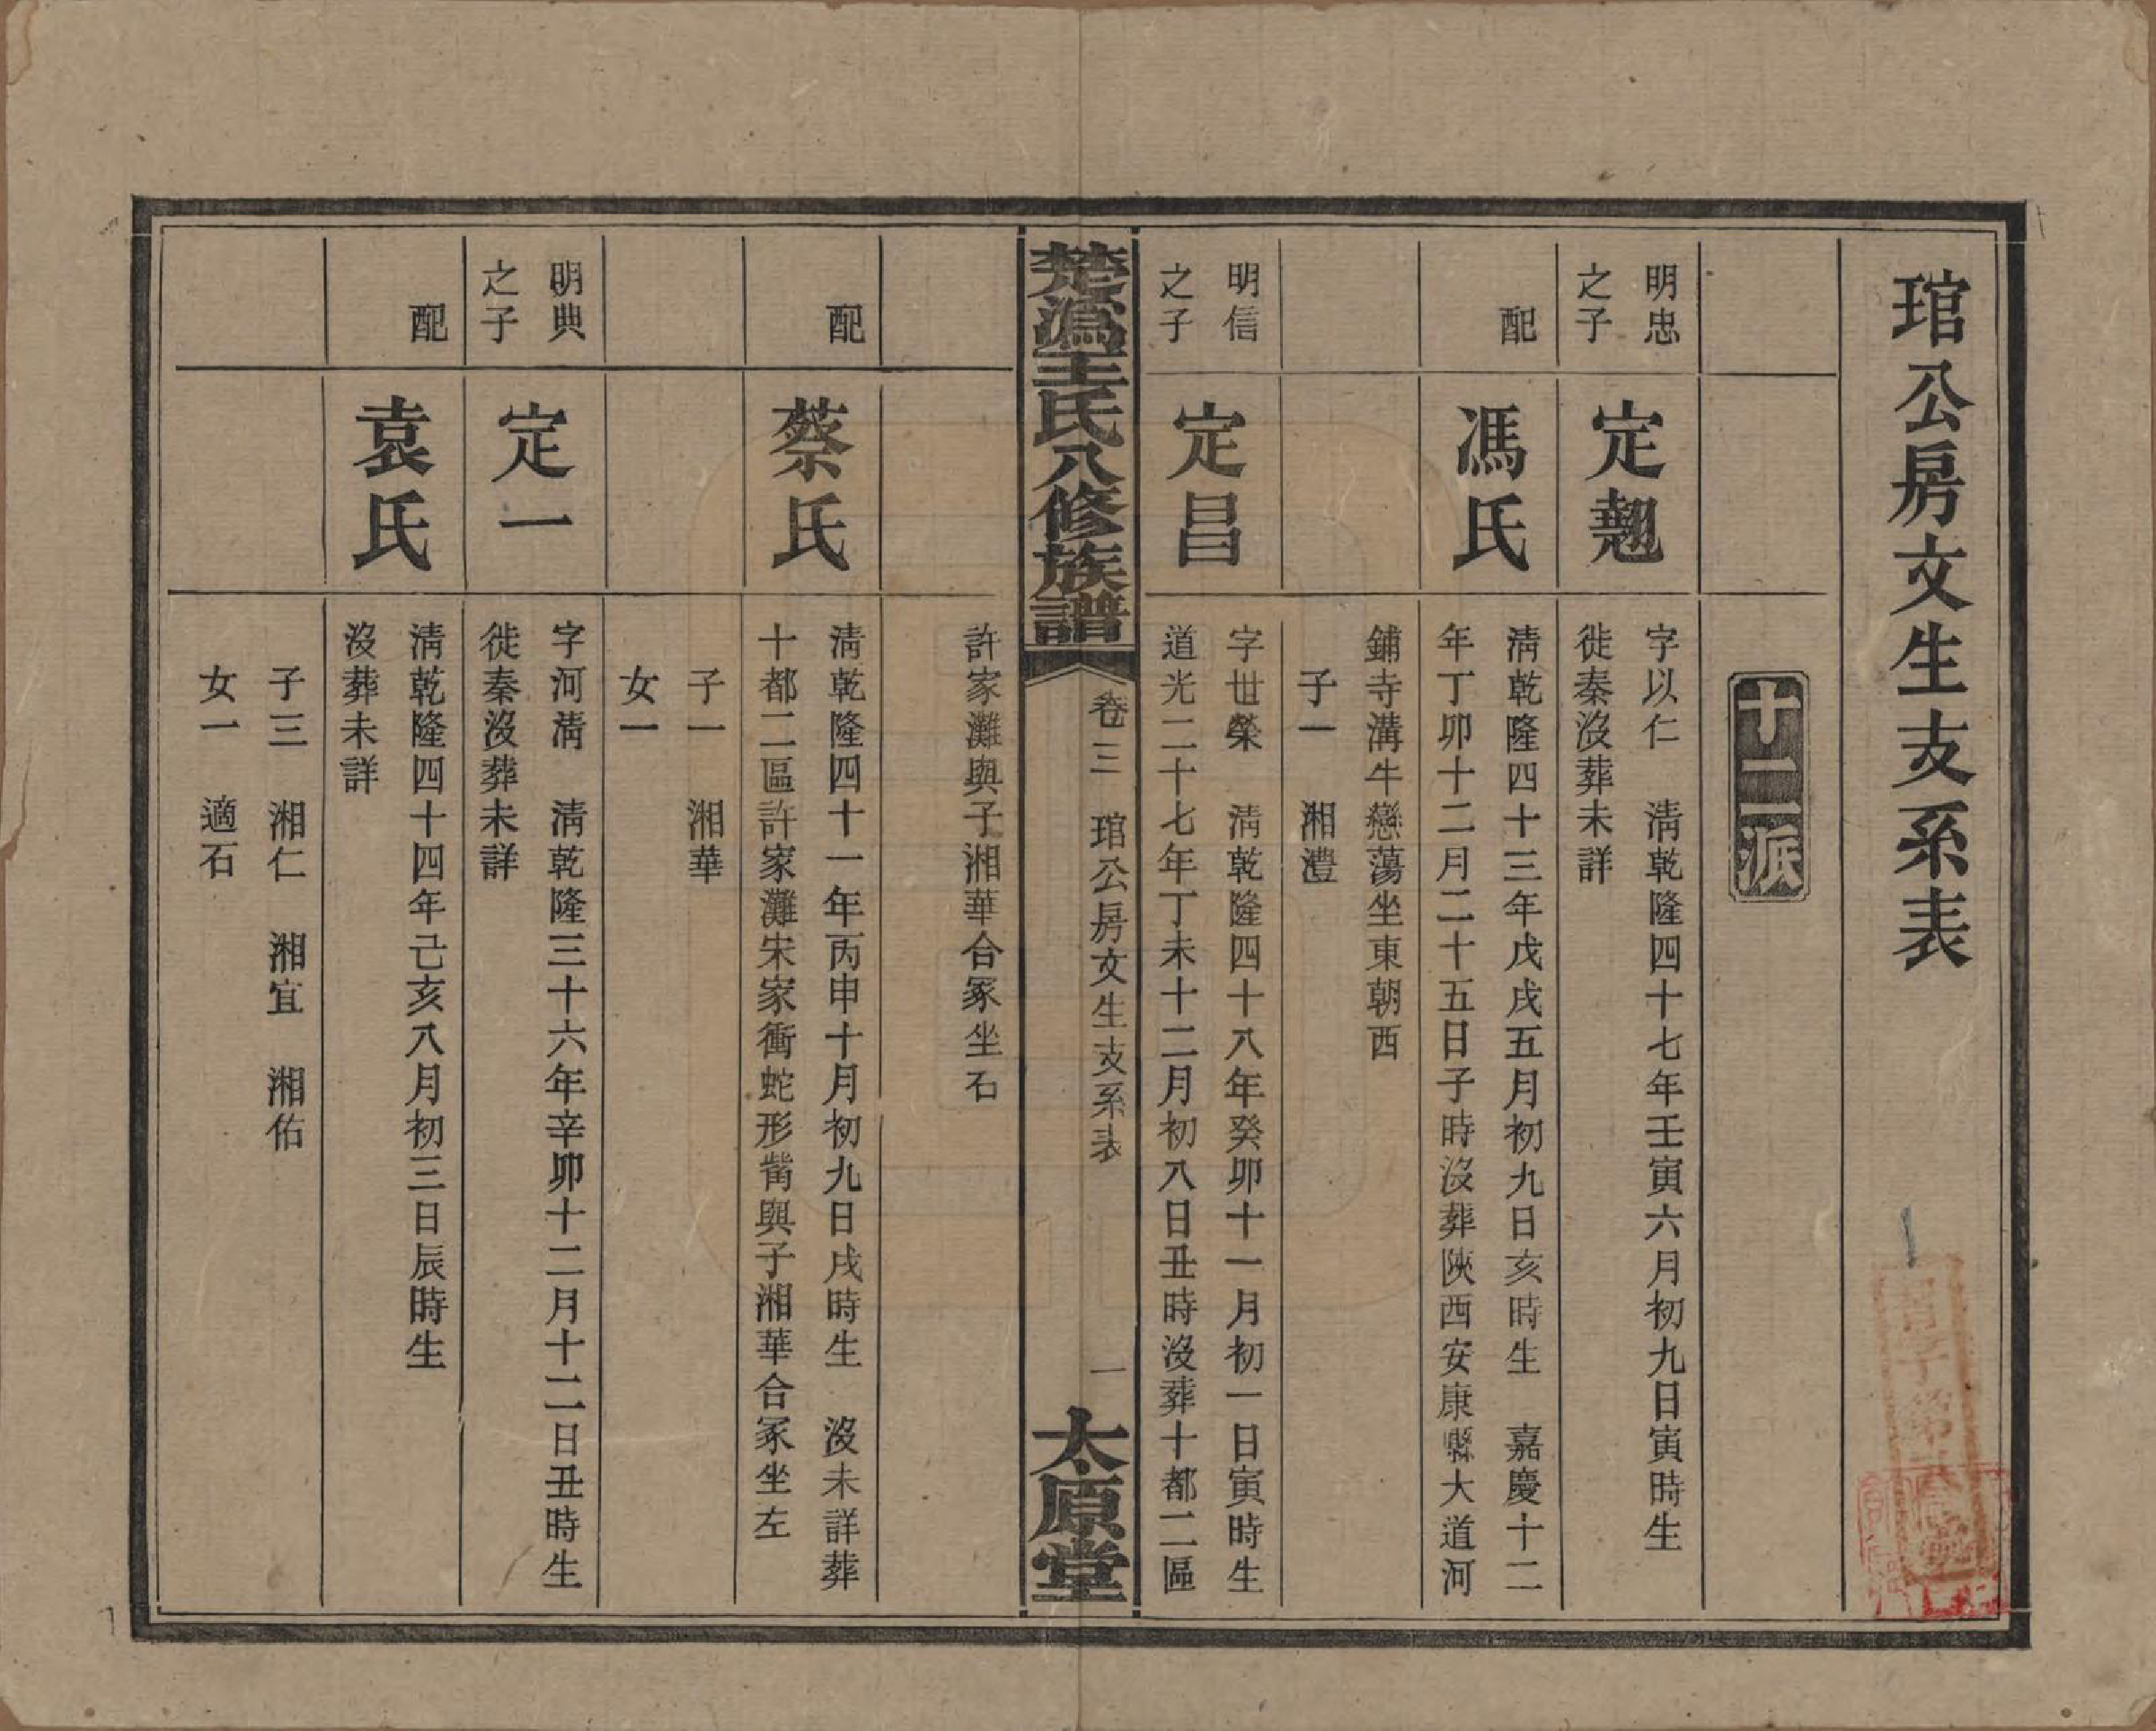 琯公房文生支系表
十二派
明忠
之子
定翹
字以仁　清乾隆四十七年壬寅六月初九日寅時生
徙秦沒葬未詳
配
馮氏
清乾隆四十三年戊戌五月初九日亥時生　嘉慶十二
年丁卯十二月二十五日子時沒葬陝西安康縣大道河
鋪寺溝牛戀蕩坐東朝西
子一　湘澧
明信
之子
定昌
字世榮　清乾隆四十八年癸卯十一月初一日寅時生
道光二十七年丁未十二月初八日丑時沒葬十都二區
楚溈王氏八修族譜
卷三　琯公房文生支系表
一
太原堂
許家灘與子湘華合冢坐石
配
蔡氏
清乾隆四十一年丙申十月初九日戌時生　沒未詳葬
十都二區許家灘宋家衝蛇形嘴與子湘華合冢坐左
子一　湘華
女一
明典
之子
定一
字河清　清乾隆三十六年辛卯十二月十二日丑時生
徙秦沒葬未詳
配
袁氏
清乾隆四十四年己亥八月初三日辰時生
沒葬未詳
子三　湘仁　湘宜　湘佑
女一　適石